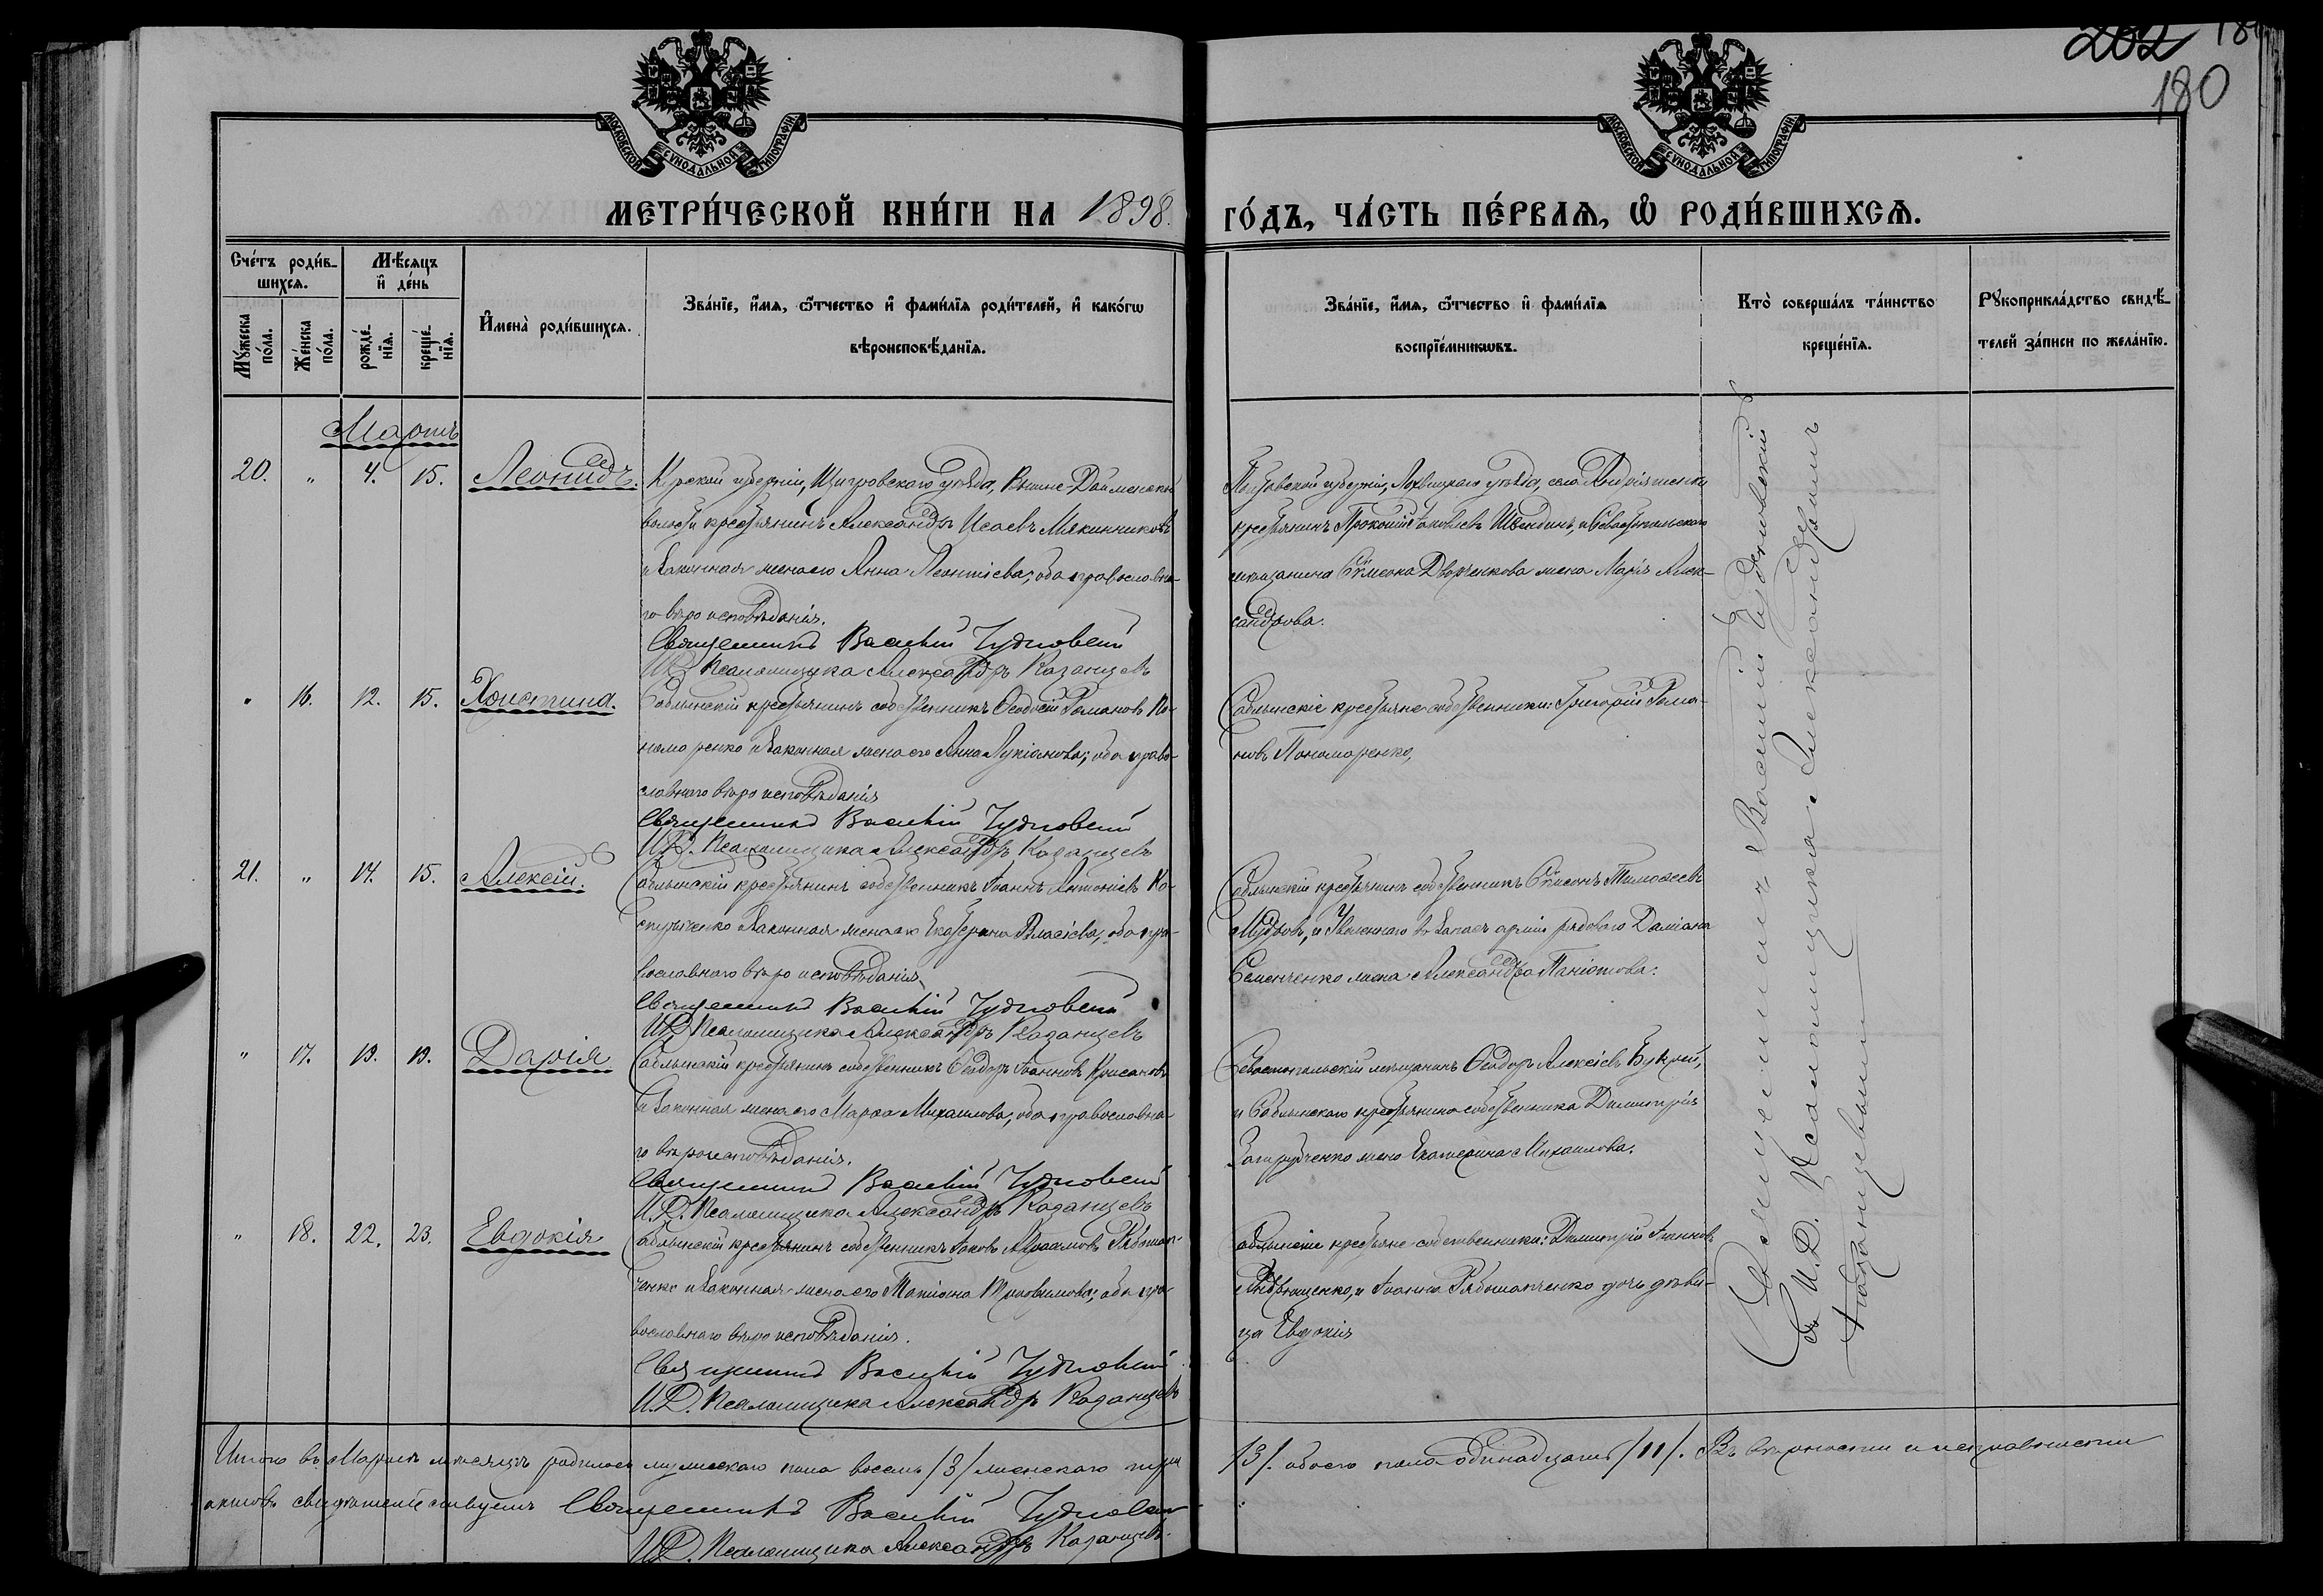 202 181
180
МОСКОВСКОЙ СѴНОДАЛЬНОЙ ТИПОГРАФІИ
МОСКОВСКОЙ СѴНОДАЛЬНОЙ ТИПОГРАФІИ
МЕТРИ́ЧЕСКОЙ КНИ́ГИ НА 1898.
ГО́ДЪ, ЧА́СТЬ ПЕ́РВАѦ, Ѽ РОДИ́ВШИХСѦ.
Сче́тъ роди́в-
шихсѧ.
Мꙋ́жеска по́ла.
Же́нска по́ла.
Мѣ́сяцъ
и҆ де́нь
рожде́-
нїѧ.
креще́-
нїѧ.
И҆мена̀ роди́вшихсѧ.
Зва́нїе, и҆́мѧ, ѻ҆́тчество и҆ фами́лїѧ роди́телей, и҆ како́гѡ
вѣроисповѣ́данїѧ.
Зва́нїе, и҆́мѧ, ѻ҆́тчество и҆ фами́лїѧ
воспрїе́мникѡвъ.
Кто̀ соверша́лъ та́инство
креще́нїѧ.
Рꙋкоприкла́дство свидѣ́-
телей за́писи по жела́нїю.
Мартъ
20. " 4. 15. Леонидъ.
Курской губерніи, Щигровскаго уѣзда, Выше-Дайменской
волости крестьянинъ Александръ Исаевъ Мякинниковъ
и законная жена его Анна Леонтіева; оба православна-
го вѣроисповѣданія.
Священникъ Василій Чудновскій
И.Д. Псаломщика Александръ Казанцевъ
Полтавской губерніи, Лохвицкаго уѣзда, села Андріяшевки
крестьянинъ Прокопій Іаковлевъ Швендинъ, и Севастопольскаго
мѣщанина Сѵмеона Дворченкова жена Марія Алек-
сандрова.
" 16. 12. 15. Христина.
Саблынскій крестьянинъ собственникъ Ѳеодосій Романовъ По-
номаренко и законная жена его Анна Лукіанова; оба право-
славнаго вѣроисповѣданія
Священникъ Василій Чудновскій
И.Д. Псаломщика Александръ Казанцевъ
Саблынскіе крестьяне собственники: Григорій Рома-
новъ Пономаренко,
21. " 14. 15. Алексій.
Саблынскій крестьянинъ собственникъ Іоаннъ Антоніевъ Ко-
стырченко и законная жена его Екатерина Власіева; оба пра-
вославнаго вѣроисповѣданія
Священникъ Василій Чудновскій
И.Д. Псаломщика Александръ Казанцевъ
Саблынскій крестьянинъ собственникъ Сѵмеонъ Тимоѳеевъ
и Уволеннаго въ запасъ арміи рядового Даміана
Семенченко жена Александра Паніотова.
" 17. 19. 19. Дарія
Саблынскій крестьянинъ собственникъ Ѳеодоръ Іоанновъ
и законная жена его Марѳа Михаилова; оба православна-
го вѣроисповѣданія.
Священникъ Василій Чудновскій
И.Д. Псаломщика Александръ Казанцевъ
Севастопольскій мѣщанинъ Ѳеодоръ Алексіевъ Букрей,
и Саблынскаго крестьянина собственника Димитрія
жена Екатерина Михаилова.
" 18. 22. 23. Евдокія
Саблынскій крестьянинъ собственникъ Іаковъ Рябошап-
ченко и законная жена его Татіана оба пра-
вославнаго вѣроисповѣданія.
Священникъ Василій Чудновскій
И.Д. Псаломщика Александръ Казанцевъ
Саблынскіе крестьяне собственники: Димитрій Іоанновъ
Андрющенко, и Іоанна Рябошапченко дочь дѣви-
ца Евдокія
Священникъ Василій Чудновскій
съ И.Д. Псаломщика Александромъ
Казанцевымъ
Итого въ Мартѣ мѣсяцѣ родилось мужескаго пола восемь /3/ женскаго три
/3/. обоего пола одинадцать /11/. Въ вѣрности и исправности
актовъ свидѣтельствуемъ Священникъ Василій Чудновскій
И.Д. Псаломщика Александръ Казанцевъ.